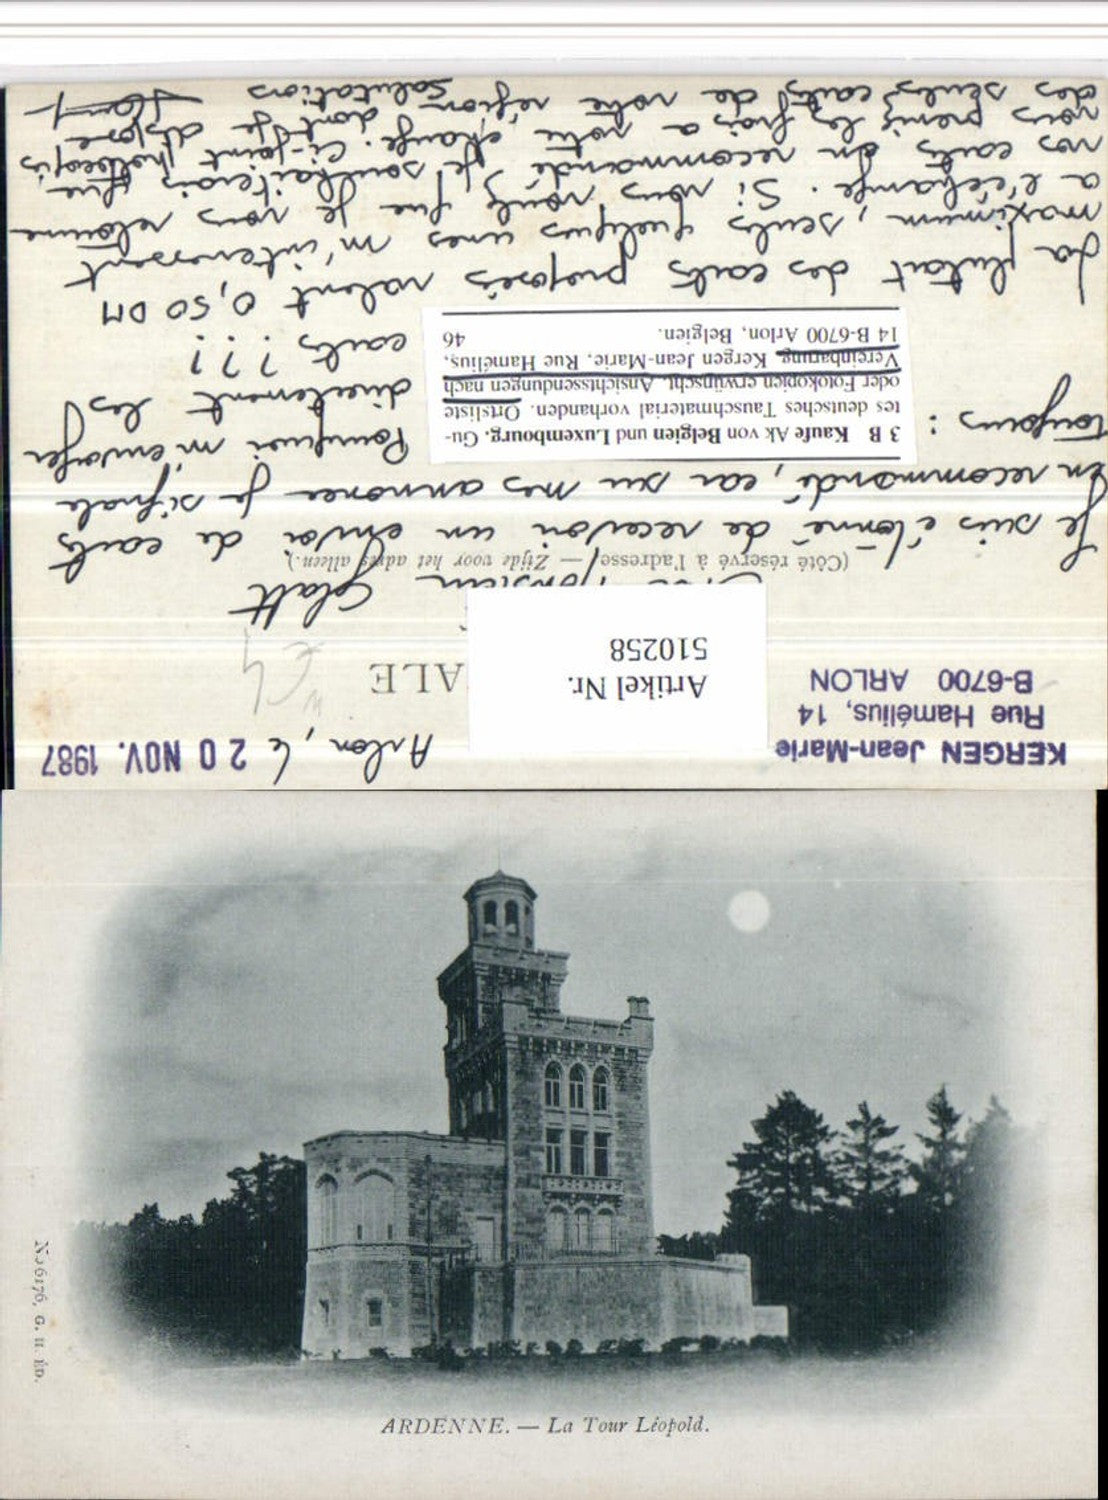 KERGEN Jean-Marie
Rue Hamélius, 14
B-6700 ARLON
Arlon, le 20 NOV. 1987
Artikel Nr.
510258
ALE
€4
Monsieur Glatt
(Côté réservé à l'adresse — Zijde voor het adres alleen.)
Je suis étonné de recevoir un envoi de carts
En recommandé, car su mes annonce je signale
toujours :
3 B Kaufe Ak von Belgien und Luxembourg. Gu-
tes deutsches Tauschmaterial vorhanden. Ortsliste
oder Fotokopien erwünscht. Ansichtssendungen nach
Vereinbarung. Kergen Jean-Marie, Rue Hamélius,
14 B-6700 Arlon, Belgien. 46
Pourquoi m'envoyer
directement les
carts ???
La plutart des carts proposés valent 0,50 DM
maximum, seuls quelques unes m'interessent
a l'échange. Si vous voulez que je vous retourne
vos carts en recommandé, je souhaiterais que
vous preniez les frais a votre charge. Ci-joint photocopis
des seules carts de votre région dont je dispose
Salutations
ARDENNE. — La Tour Léopold.
No 6176, G. H. ÉD.